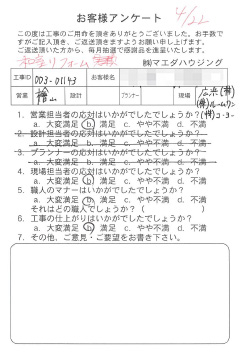 お客様アンケート 4/22
この度は工事のご用命を頂きありがとうございました。お手数で
すがご記入頂き、ご返送頂きますようお願い申し上げます。
ご返送頂いた方から、毎月抽選で感謝品を進呈いたします。
㈱マエダハウジング
工事ID 003-01143 お客様名
営業 檜山 設計 プランナー 現場
1. 営業担当者の応対はいかがでしたでしょうか?
a. 大変満足 b. 満足 c. やや不満 d. 不満
2. 設計担当者の応対はいかがでしたでしょうか?
a. 大変満足 b. 満足 c. やや不満 d. 不満
3. プランナーの応対はいかがでしたでしょうか?
a. 大変満足 b. 満足 c. やや不満 d. 不満
4. 現場担当者の応対はいかがでしたでしょうか?
a. 大変満足 b. 満足 c. やや不満 d. 不満
5. 職人のマナーはいかがでしたでしょうか?
a. 大変満足 b. 満足 c. やや不満 d. 不満
それはどの職人でしょうか?( )
6. 工事の仕上がりはいかがでしたでしょうか?
a. 大変満足 b. 満足 c. やや不満 d. 不満
7. その他、ご意見・ご要望をお書き下さい。